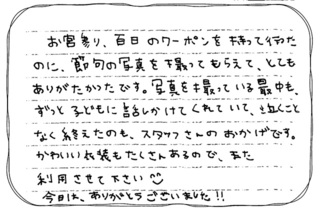 お宮参り、百日のクーポンを持って行った
のに、節句の写真を撮ってもらえて、とても
ありがたかったです。写真を撮っている最中も、
ずっと子どもに話しかけてくれていて、泣くこと
なく終えたのも、スタッフさんのおかげです。
かわいい衣装もたくさんあるので、また
利用させて下さい
今日は、ありがとうございました!!